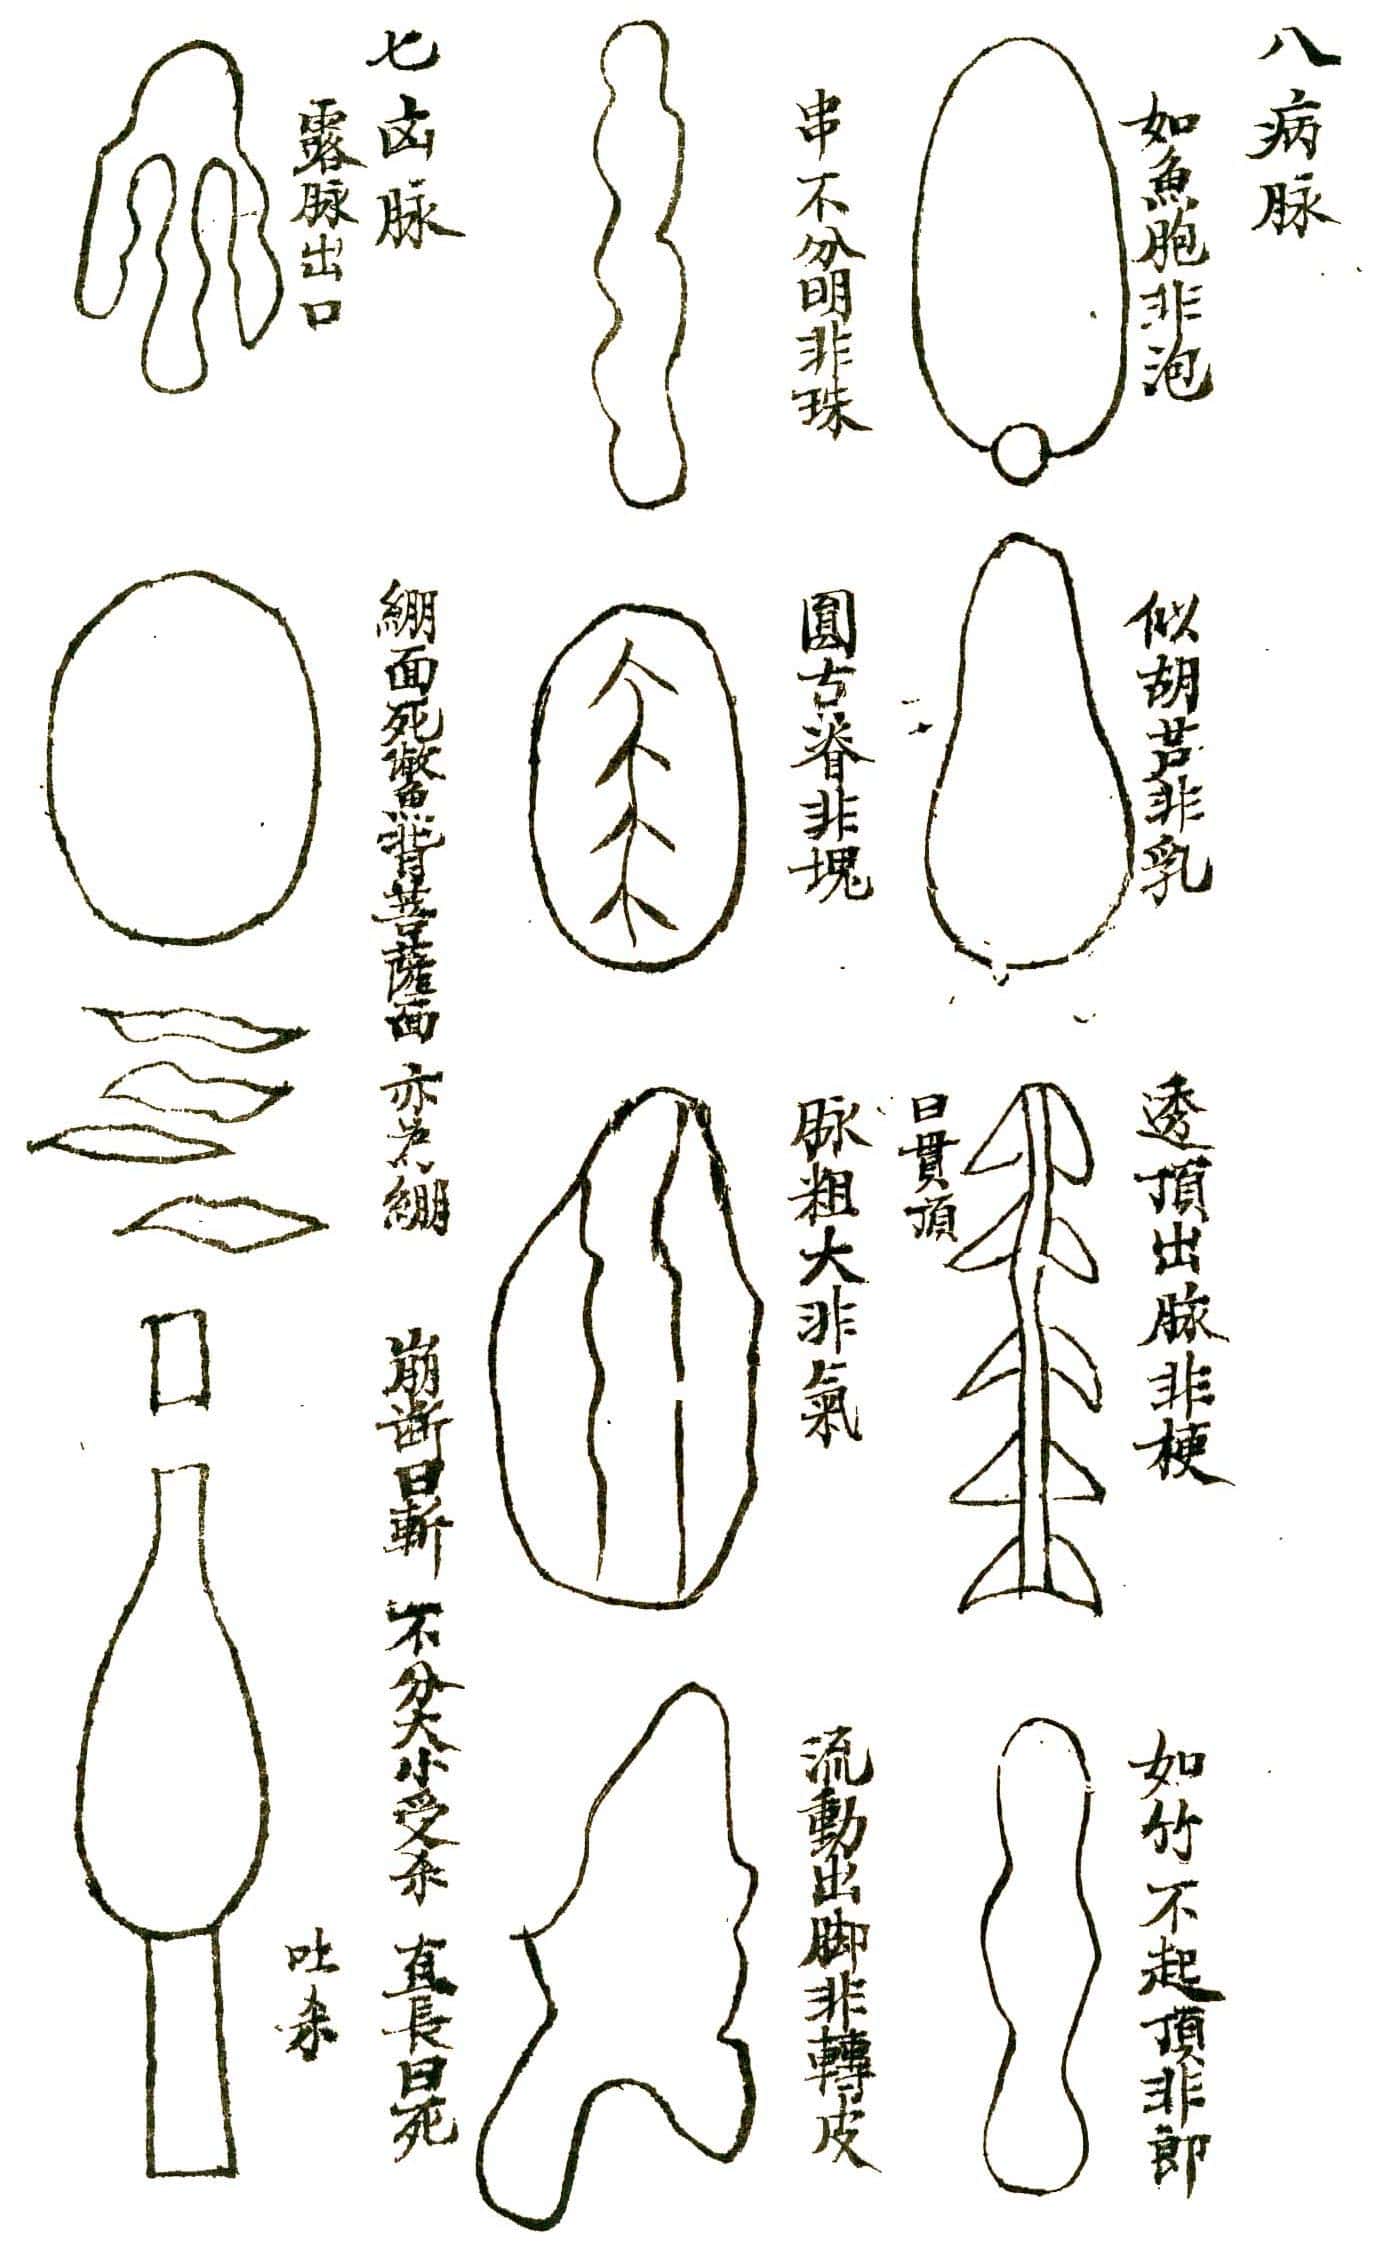 八病脉
如魚胞非泡
似胡芦非乳
透頂出脉非梗
曰貫頂
如竹不起頂非節
串不分明非珠
圓古脊非塊
脉粗大非氣
流動出脚非轉皮
七凶脉
露脉出口
綳面死鱉背菩薩面亦為綳
崩斷曰斬
不分大小受杀
直長曰死
吐杀